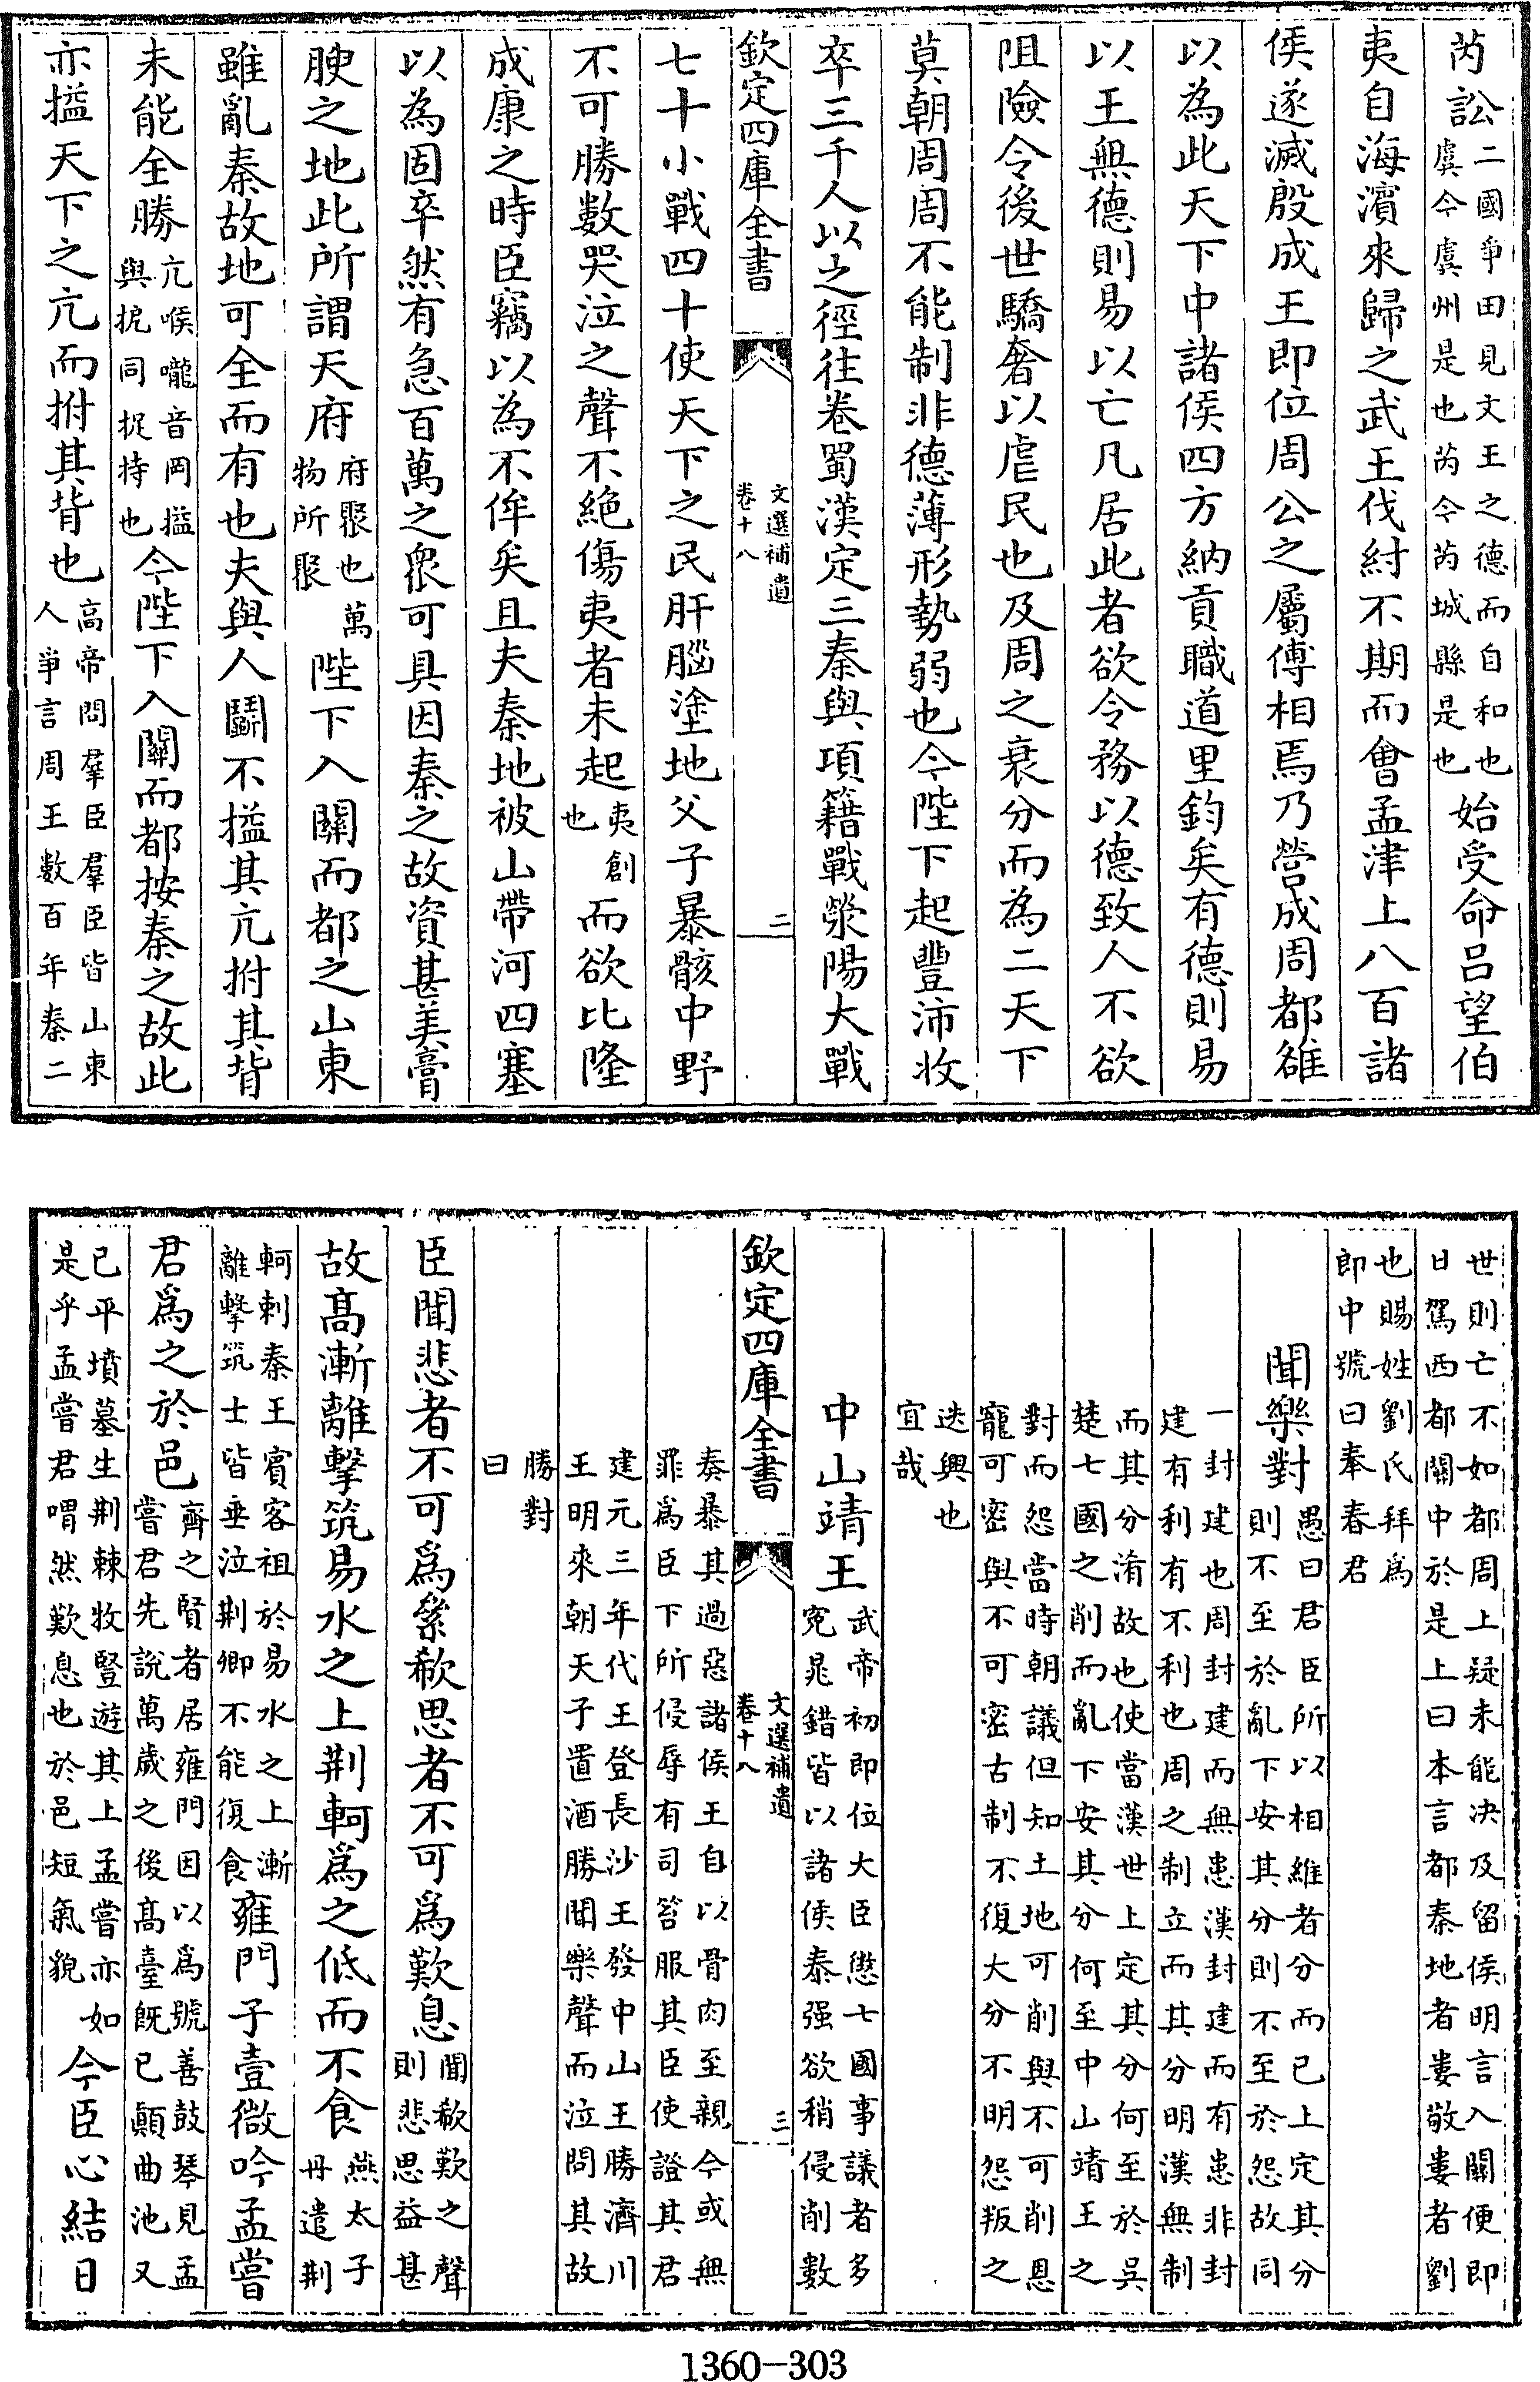 芮訟二國爭田見文王之德而自和也虞今虞州是也芮今芮城縣是也始受命呂望伯
夷自海濱來歸之武王伐紂不期而會孟津上八百諸
侯遂滅殷成王即位周公之屬傅相焉乃營成周都雒
以為此天下中諸侯四方納貢職道里鈞矣有德則易
以王無德則易以亡凡居此者欲令務以德致人不欲
阻險令後世驕奢以虐民也及周之衰分而為二天下
莫朝周周不能制非德薄形勢弱也今陛下起豐沛收
卒三千人以之徑往卷蜀漢定三秦與項籍戰滎陽大戰
欽定四庫全書 文選補遺 卷十八 二
七十小戰四十使天下之民肝腦塗地父子暴骸中野
不可勝數哭泣之聲不絕傷夷者未起夷創也而欲比隆
成康之時臣竊以為不侔矣且夫秦地被山帶河四塞
以為固卒然有急百萬之衆可具因秦之故資甚美膏
腴之地此所謂天府府聚也萬物所聚陛下入關而都之山東
雖亂秦故地可全而有也夫與人鬭不搤其亢拊其背
未能全勝亢喉嚨音岡搤與扼同捉持也今陛下入關而都按秦之故此
亦搤天下之亢而拊其背也高帝問羣臣羣臣皆山東人爭言周王數百年秦二
世則亡不如都周上疑未能决及留侯明言入關便即日駕西都關中於是上曰本言都秦地者婁敬婁者劉
也賜姓劉氏拜為郎中號曰奉春君
聞樂對愚曰君臣所以相維者分而已上定其分則不至於亂下安其分則不至於怨故同
一封建也周封建而無患漢封建而有患非封建有利有不利也周之制立而其分明漢無制
而其分淆故也使當漢世上定其分何至於吳楚七國之削而亂下安其分何至中山靖王之
對而怨當時朝議但知土地可削與不可削恩寵可密與不可密古制不復大分不明怨叛之
迭興也宜哉
中山靖王武帝初即位大臣懲七國事議者多寃晁錯皆以諸侯泰强欲稍侵削數
欽定四庫全書 文選補遺 卷十八 三
奏暴其過惡諸侯王自以骨肉至親今或無罪爲臣下所侵辱有司笞服其臣使證其君
建元三年代王登長沙王發中山王勝濟川王明來朝天子置酒勝聞樂聲而泣問其故
勝對曰
臣聞悲者不可爲絫欷思者不可爲歎息聞欷歎之聲則悲思益甚
故髙漸離擊筑易水之上荆軻爲之低而不食燕太子丹遣荆
軻刺秦王賓客祖於易水之上漸離擊筑士皆垂泣荆卿不能復食雍門子壹微吟孟嘗
君爲之於邑齊之賢者居雍門因以爲號善鼓琴見孟嘗君先說萬歲之後髙臺旣已顚曲池又
已平墳墓生荆棘牧豎遊其上孟嘗亦如是乎孟嘗君喟然歎息也於邑短氣貌今臣心結日
1360-303